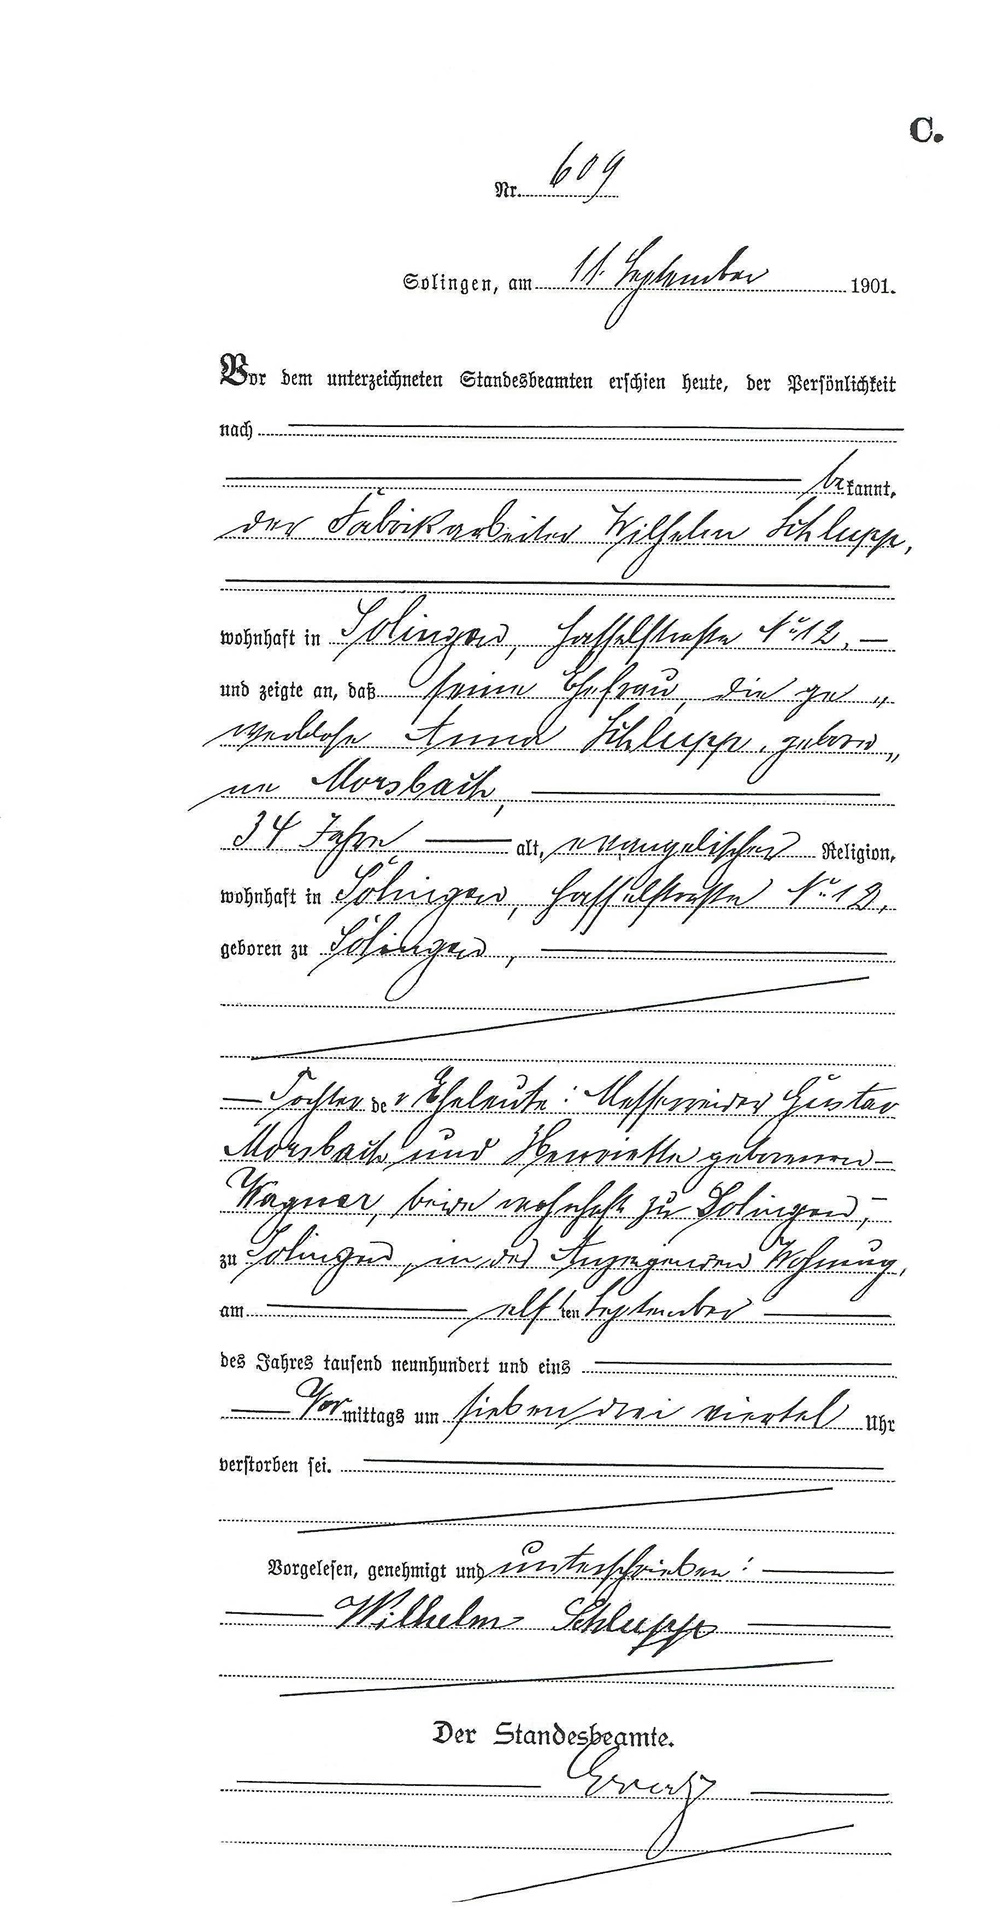 C.
Nr. 609
Solingen, am 11. September 1901.
Vor dem unterzeichneten Standesbeamten erschien heute, der Persönlichkeit
nach
bekannt,
der Fabrikarbeiter Wilhelm Schlupp,
wohnhaft in Solingen, Hasselstraße No 12,
und zeigte an, daß seine Ehefrau, die ge„
werblose Anna Schlupp, gebore„
ne Morsbach,
34 Jahre alt, evangelischer Religion,
wohnhaft in Solingen, Hasselstraße No 12,
geboren zu Solingen,
Tochter der Eheleute: Messerreider Gustav
Morsbach und Henriette geborenen
Wagner, beide wohnhaft zu Solingen,
zu Solingen, in der Wohnung,
am elften September
des Jahres tausend neunhundert und eins
Vormittags um sieben drei viertel Uhr
verstorben sei.
Vorgelesen, genehmigt und unterschrieben:
Wilhelm Schlupp
Der Standesbeamte.